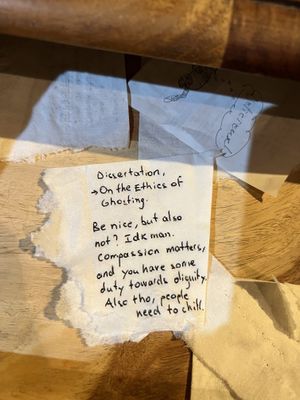 Dissertation,
→ On the Ethics of
Ghosting.
Be nice, but also
not? Idk man.
Compassion matters,
and you have some
duty towards dignity.
Also tho, people
need to chill.